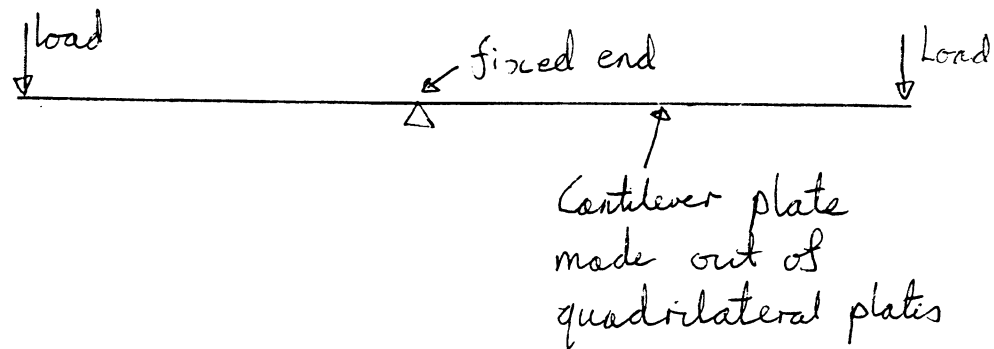 Load
fixed end
Load
Cantilever plate
made out of
quadrilateral plates